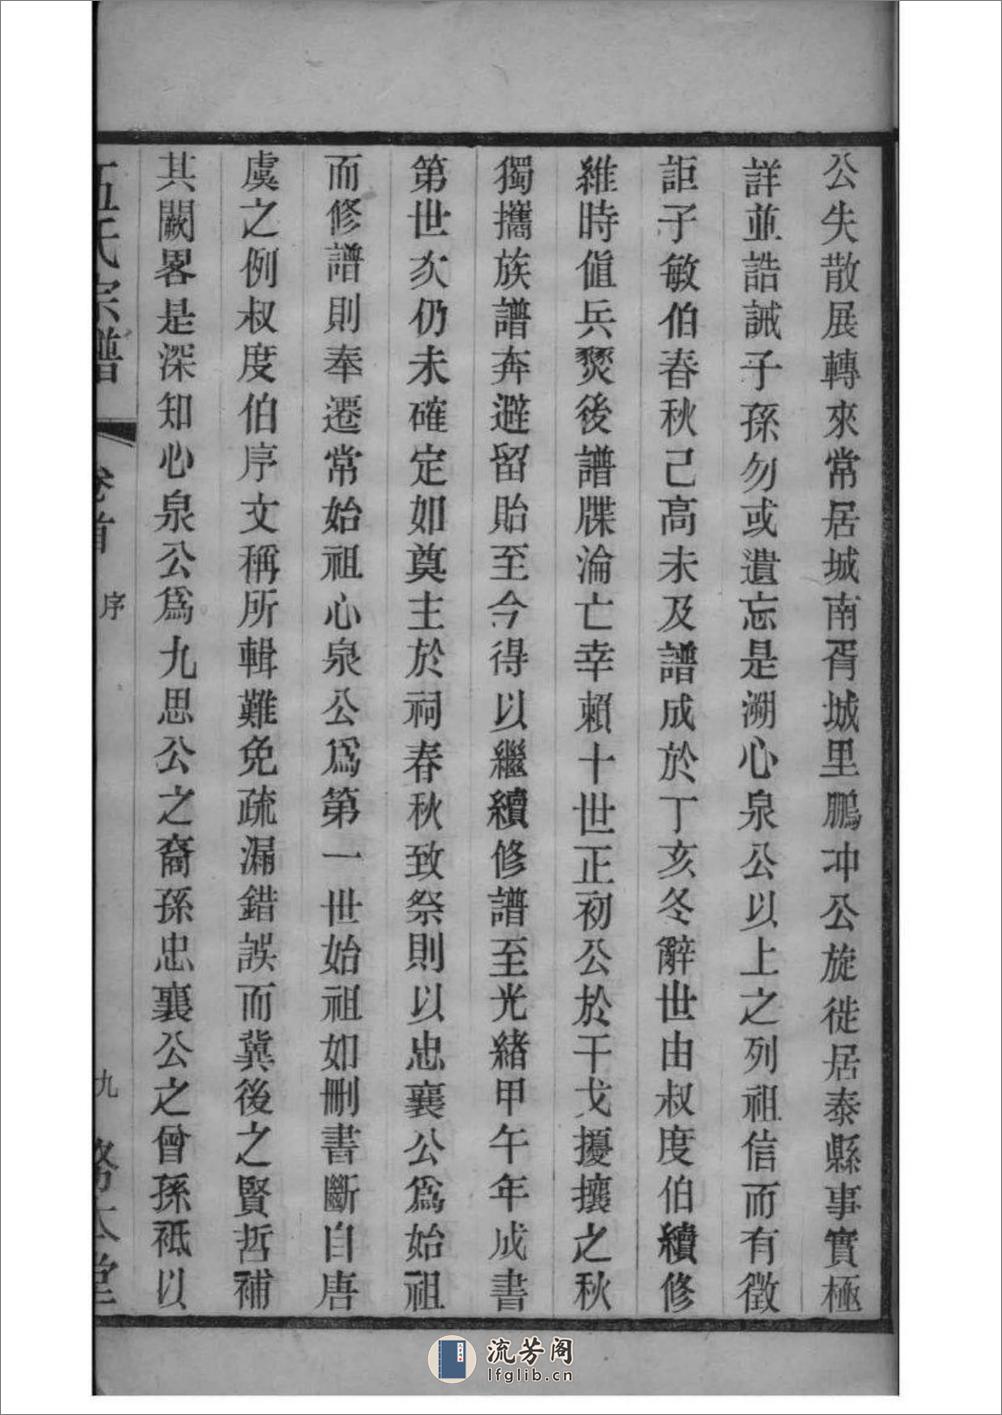 公失散展轉來常居城南胥城里鵬冲公旋徙居泰縣事實極
詳並誥誡子孫勿或遺忘是溯心泉公以上之列祖信而有徵
詎子敏伯春秋己高未及譜成於丁亥冬辭世由叔度伯續修
維時值兵燹後譜牒淪亡幸賴十世正初公於干戈擾攘之秋
獨攜族譜奔避留貽至今得以繼續修譜至光緒甲午年成書
第世次仍未確定如奠主於祠春秋致祭則以忠襄公爲始祖
而修譜則奉遷常始祖心泉公爲第一世始祖如刪書斷自唐
虞之例叔度伯序文稱所輯難免疏漏錯誤而冀後之賢哲補
其闕畧是深知心泉公爲九思公之裔孫忠襄公之曾孫袛以
伍氏宗譜 卷首 序 九 務本堂
流芳阁
lfglib.cn